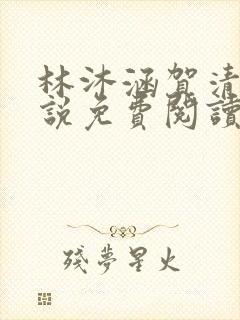 林沐涵賀清
說免費閱讀
殘夢星火